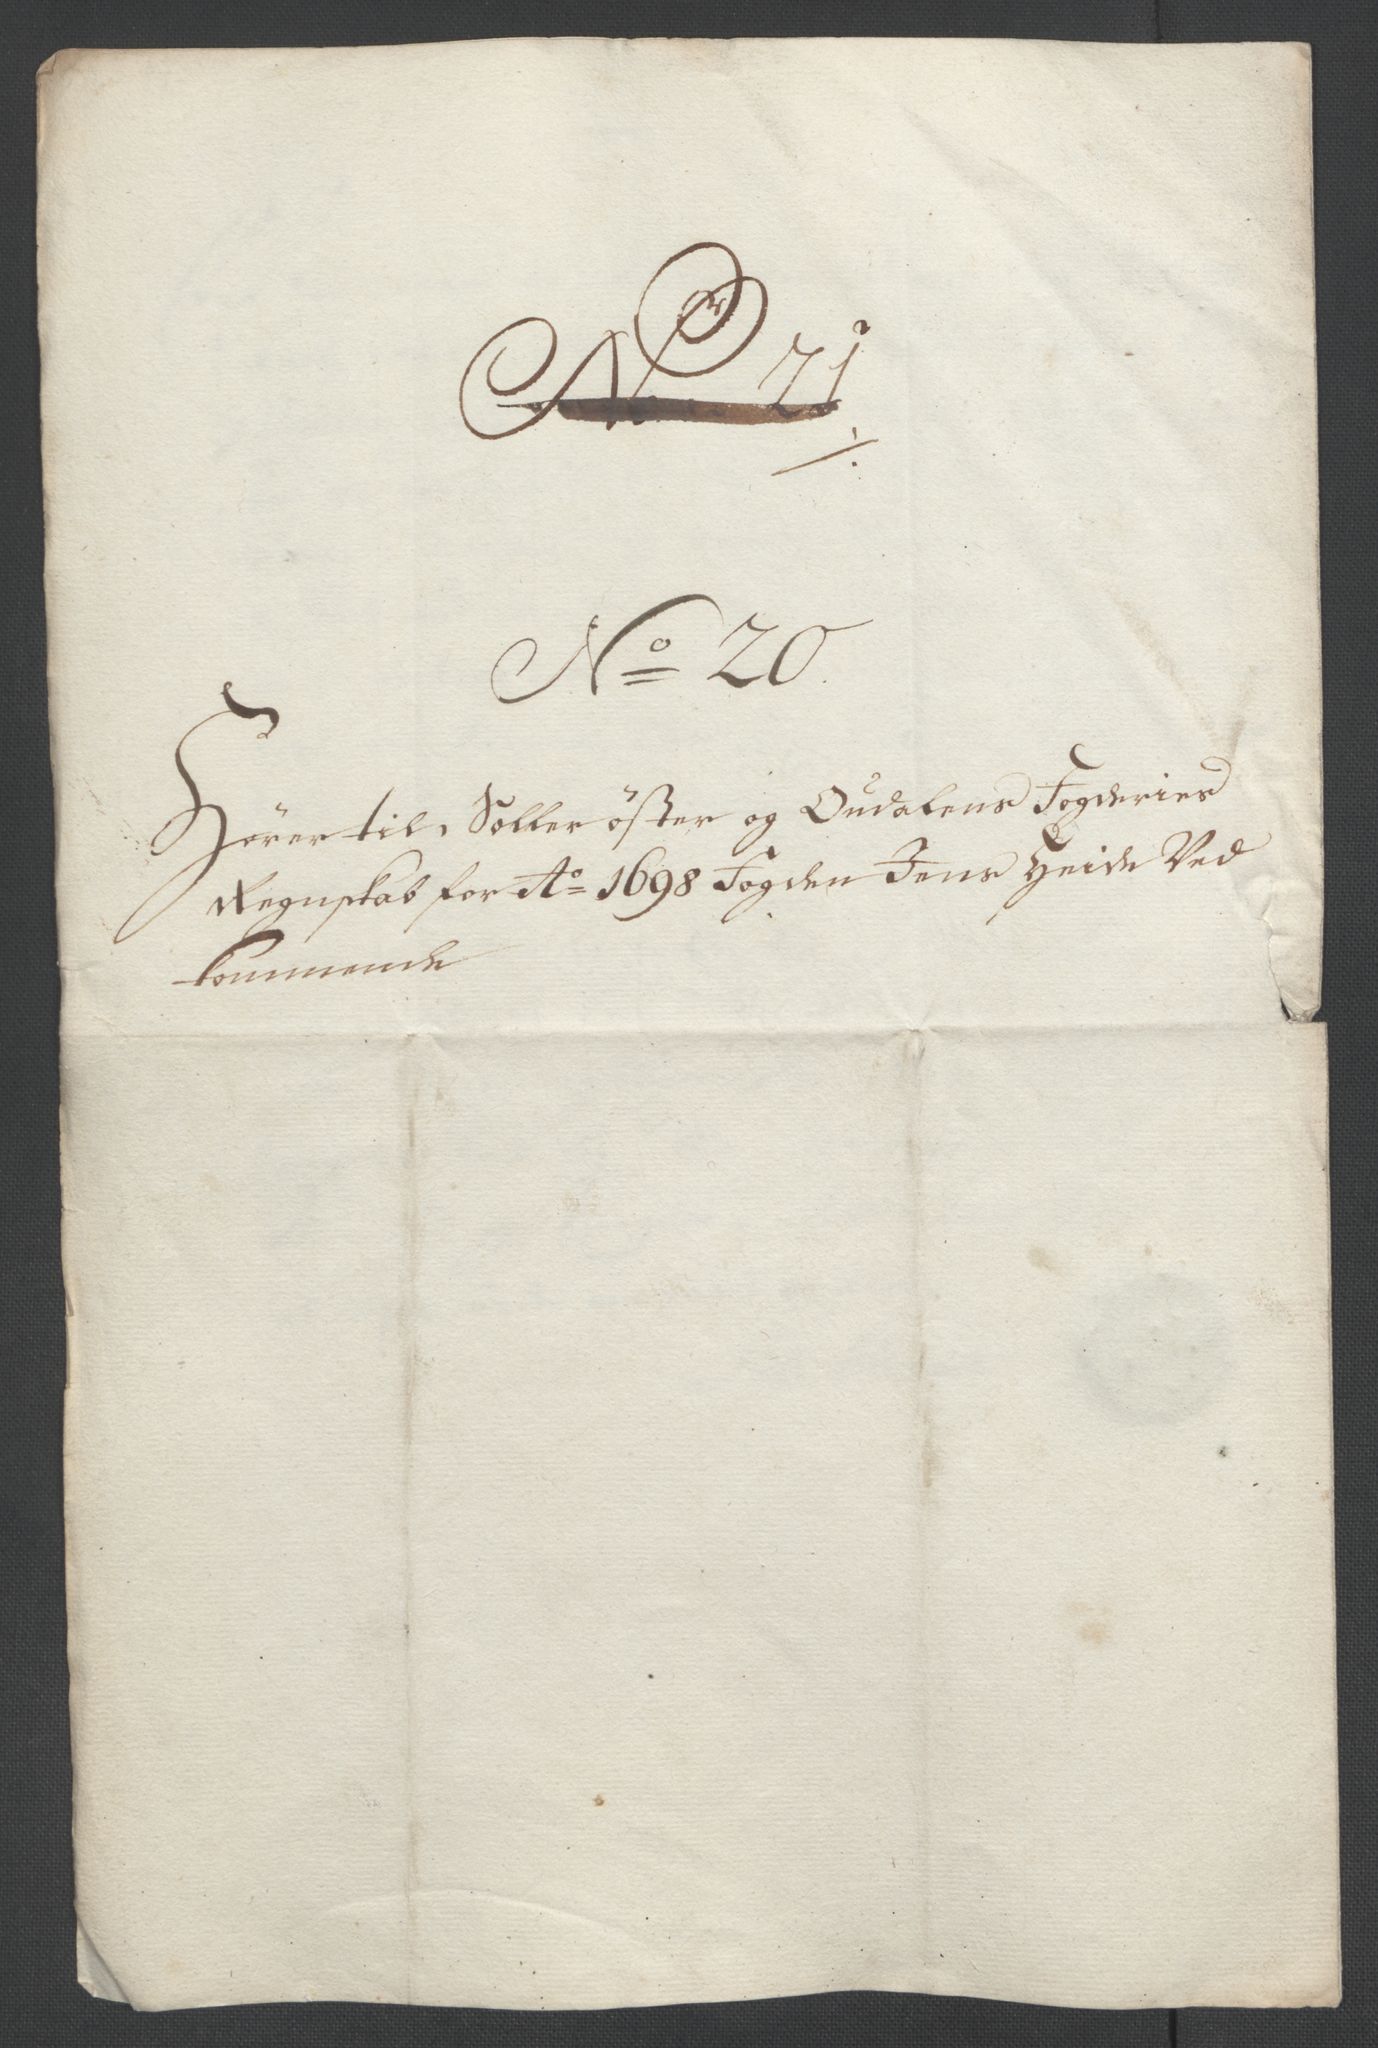 Nr 21
No 20
Hörer til Soller öster og Oudalens Fogderies
Regnskab for Ao 1698 Fogden Jens Heide Ved
kommende